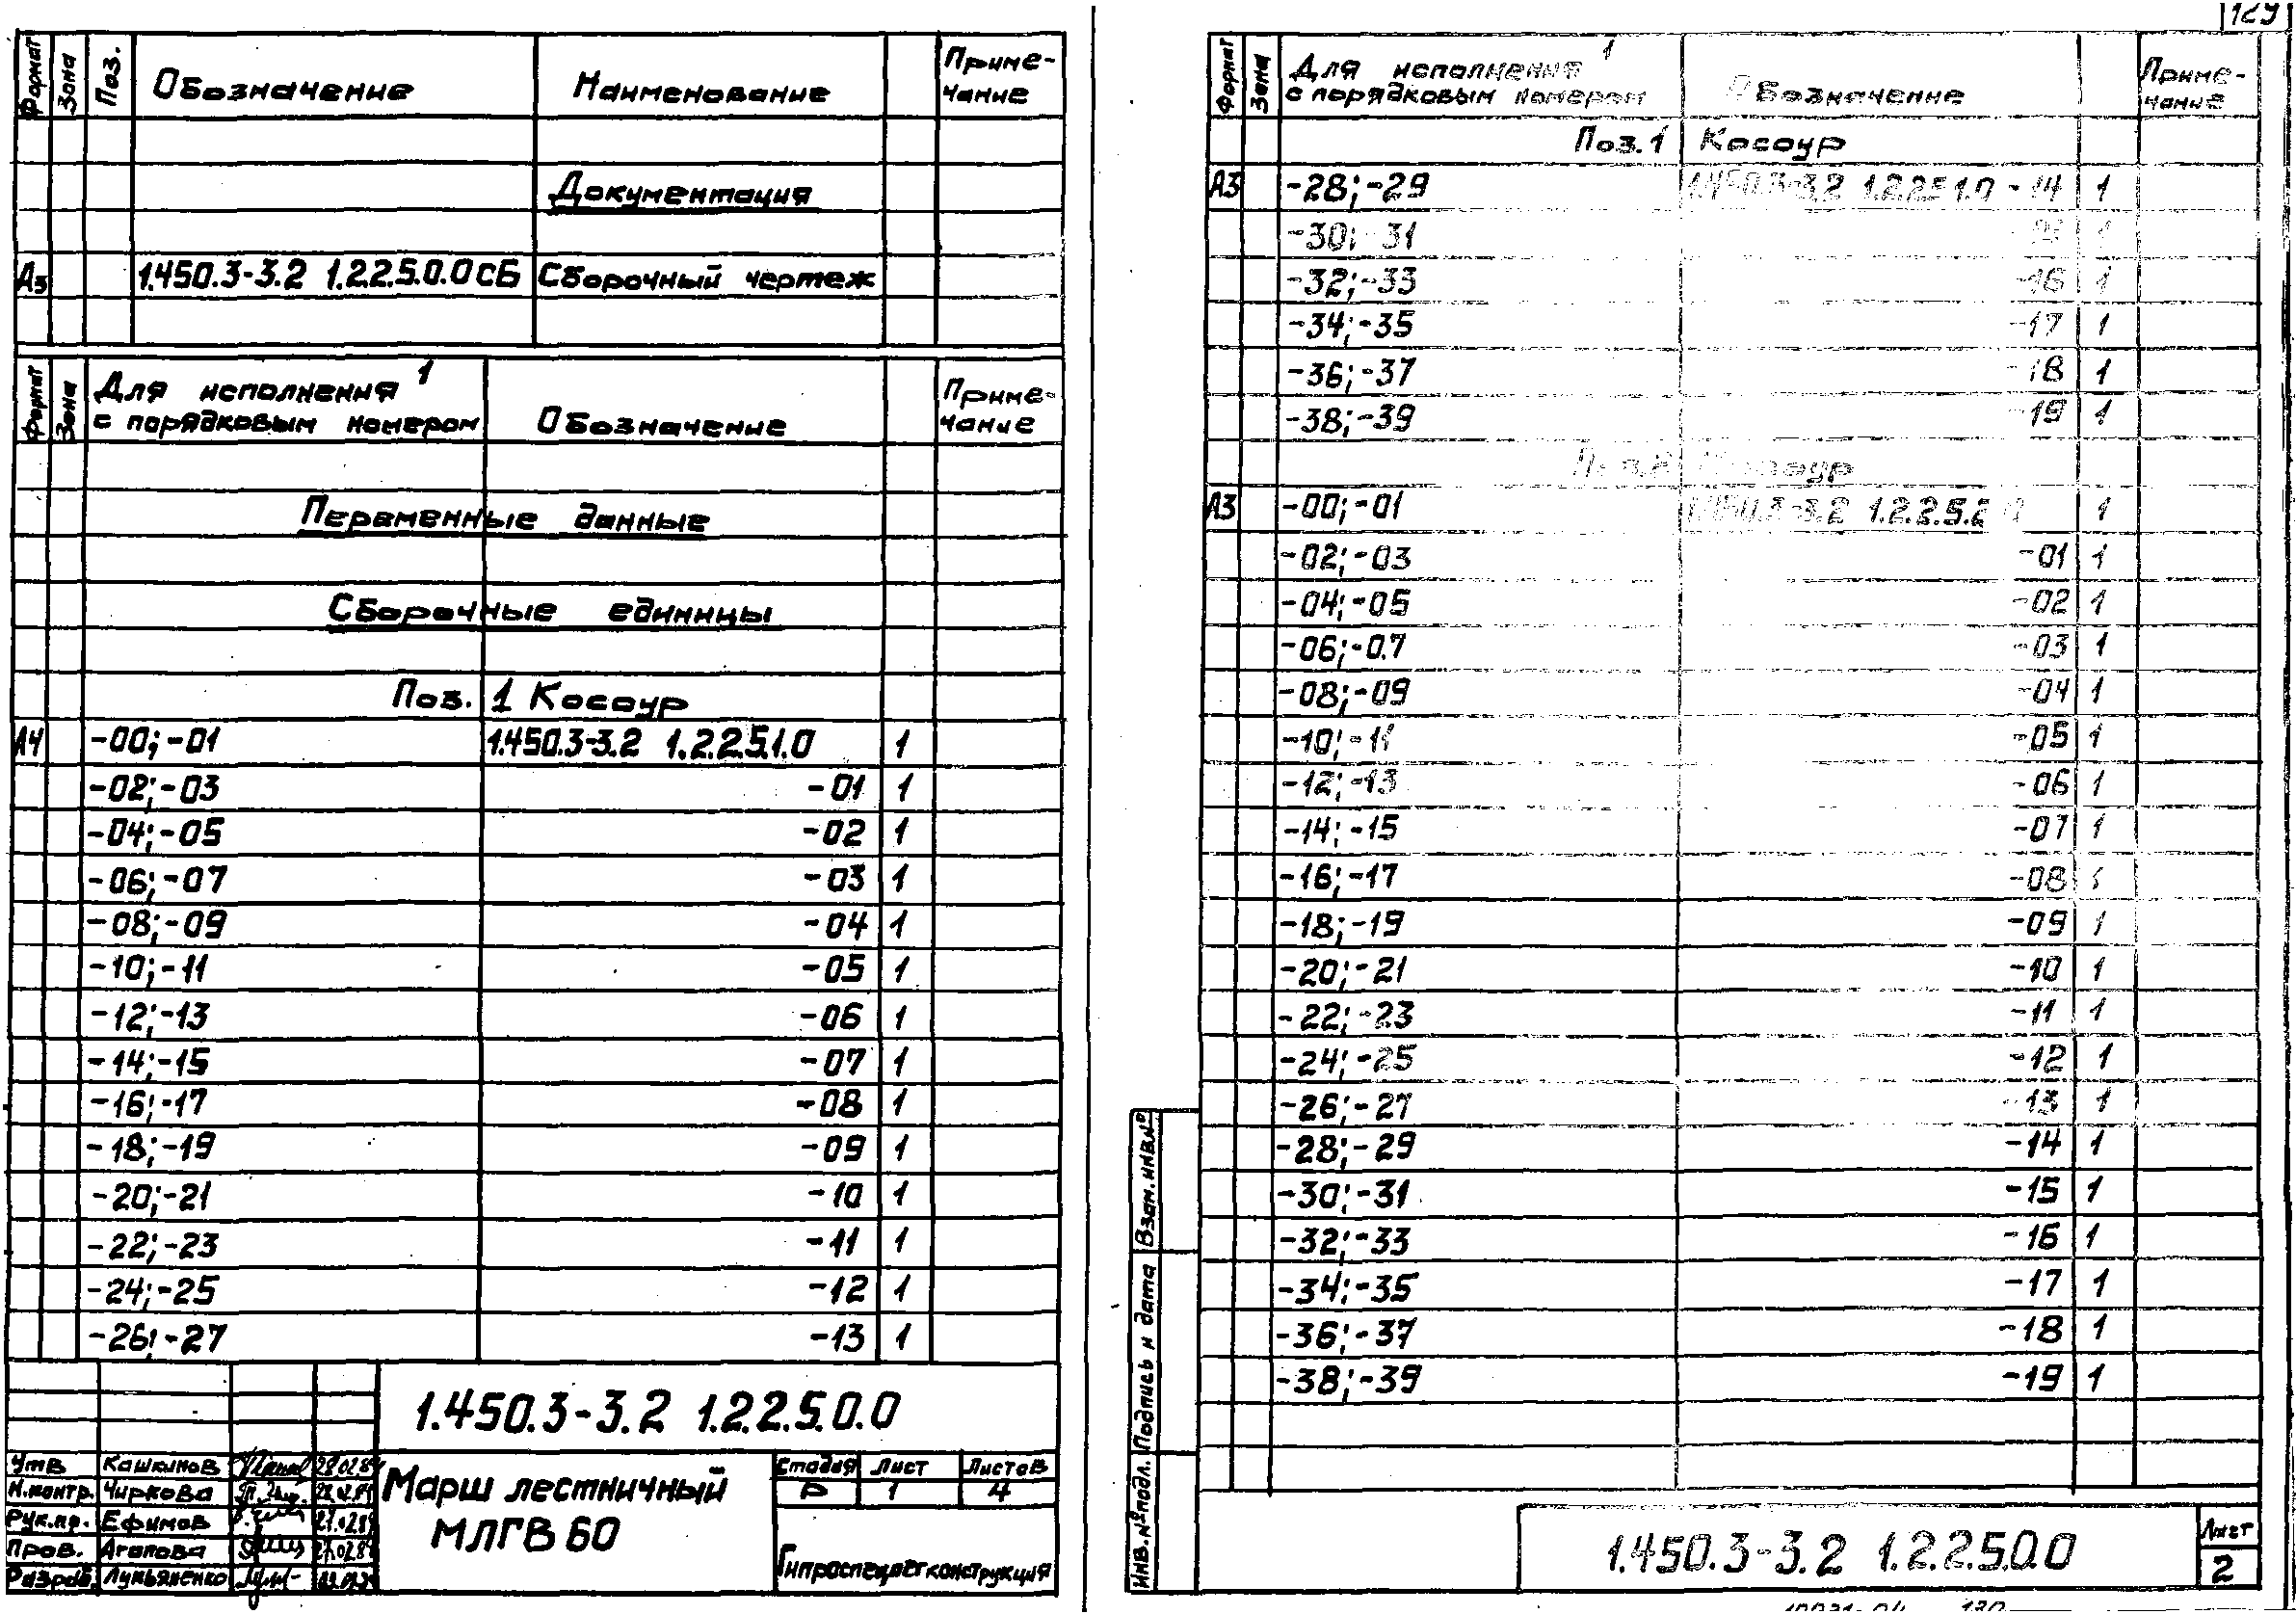 Формат Зона Поз. Обозначение Наименование Приме-
чание
Документация
А3 1.450.3-3.2 1.2.2.5.0.0 СБ Сборочный чертеж
Формат Зона Для исполнения 1 Обозначение Приме-
с порядковым номером чание
Переменные данные
Сборочные единицы
Поз. 1 Косоур
А4 -00; -01 1.450.3-3.2 1.2.2.5.1.0 1
-02; -03 -01 1
-04; -05 -02 1
-06; -07 -03 1
-08; -09 -04 1
-10; -11 -05 1
-12; -13 -06 1
-14; -15 -07 1
-16; -17 -08 1
-18; -19 -09 1
-20; -21 -10 1
-22; -23 -11 1
-24; -25 -12 1
-26; -27 -13 1
1.450.3-3.2 1.2.2.5.0.0
Утв Кашкинов
Н.контр. Чиркова
Рук.пр. Ефимов
Пров. Агапова
Разраб. Лукьяненко
Марш лестничный
МЛГВ 60
Стадия Лист Листов
Р 1 4
Гипроспецлегконструкция
129
Формат Зона Для исполнения 1 Обозначение Приме-
с порядковым номером чание
Поз. 1 Косоур
А3 -28; -29 1.450.3-3.2 1.2.2.5.1.0 -14 1
-30; -31 1
-32; -33 -16 1
-34; -35 -17 1
-36; -37 -18 1
-38; -39 -19 1
Косоур
А3 -00; -01 1.450.3-3.2 1.2.2.5.2.0 1
-02; -03 -01 1
-04; -05 -02 1
-06; -07 -03 1
-08; -09 -04 1
-10; -11 -05 1
-12; -13 -06 1
-14; -15 -07 1
-16; -17 -08 1
-18; -19 -09 1
-20; -21 -10 1
-22; -23 -11 1
-24; -25 -12 1
-26; -27 -13 1
-28; -29 -14 1
-30; -31 -15 1
-32; -33 -16 1
-34; -35 -17 1
-36; -37 -18 1
-38; -39 -19 1
Взам. инв.№
Подпись и дата
Инв.№ подл.
1.450.3-3.2 1.2.2.5.0.0
Лист
2